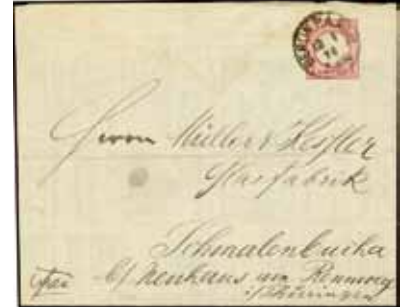 Herrn Müller & Hessler
Glasfabrik
Schmalenbucha
b/ Neuhaus am Rennweg
i/Thüringen